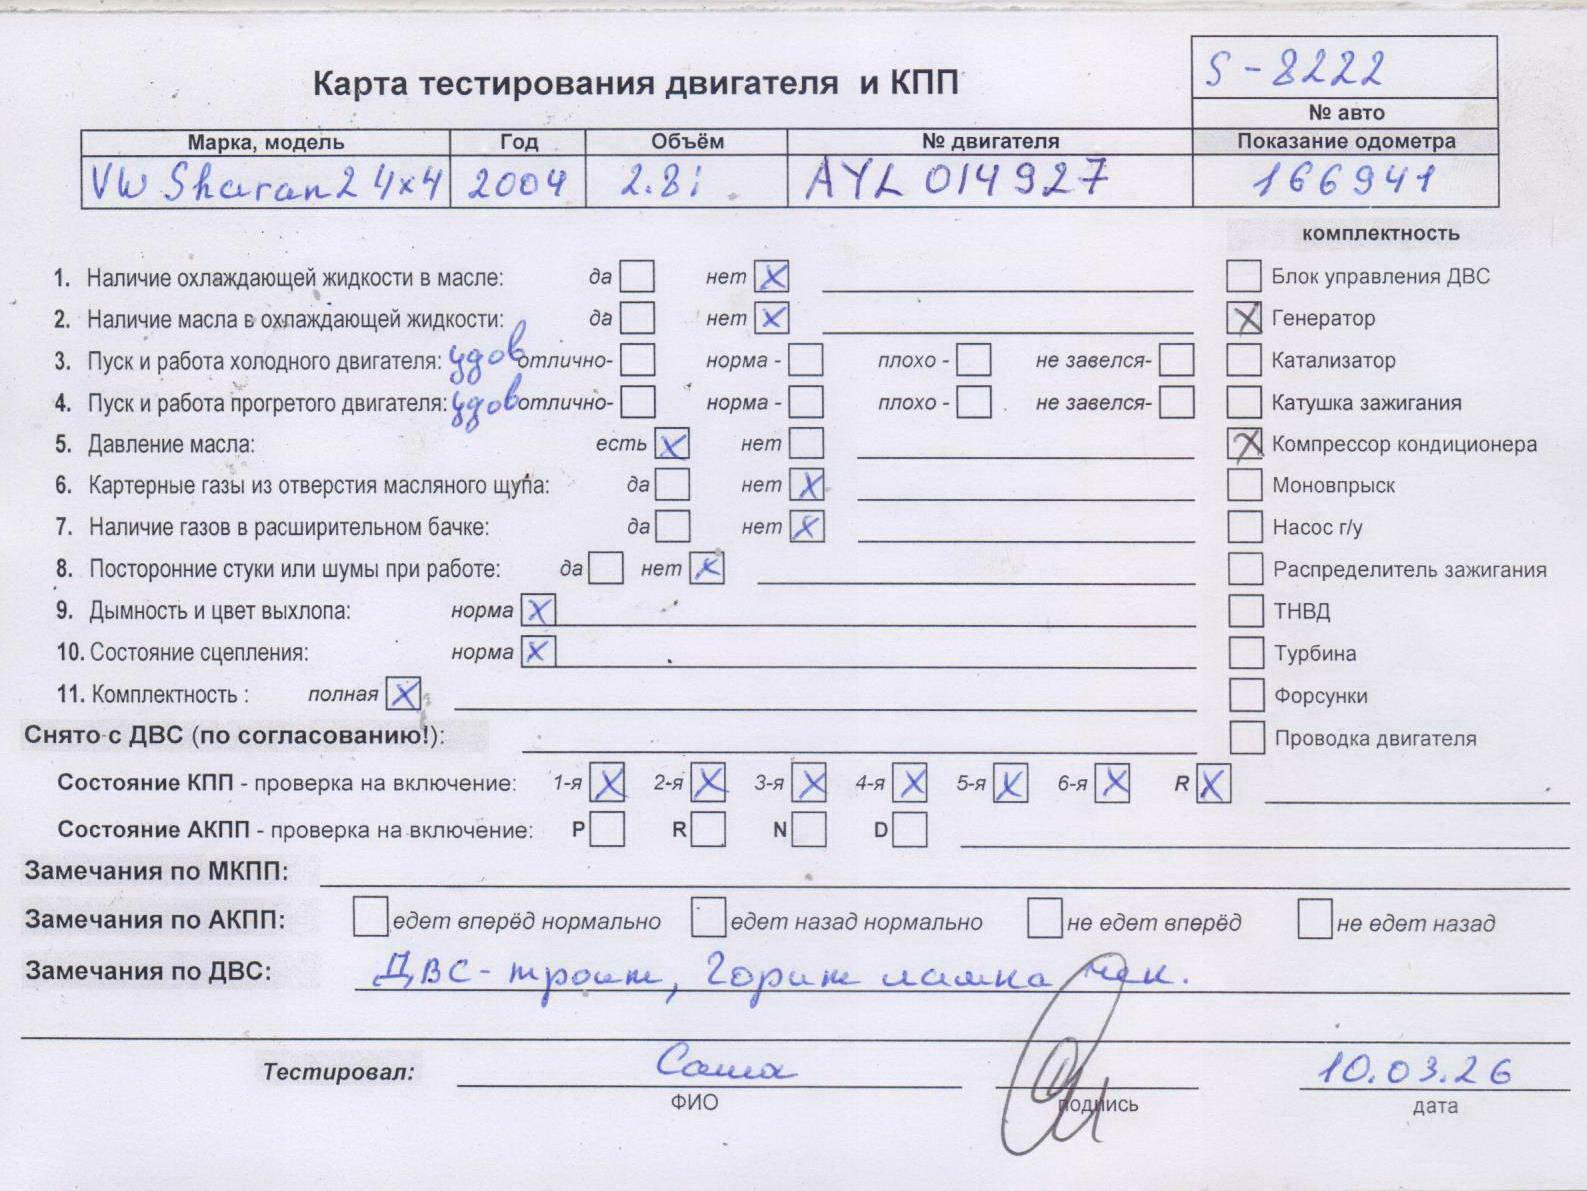 S-8222
Карта тестирования двигателя и КПП
№ авто
Марка, модель Год Объём № двигателя Показание одометра
VW Sharan2 4x4 2004 2.8i AYL 014927 166941
комплектность
1. Наличие охлаждающей жидкости в масле: да нет X Блок управления ДВС
2. Наличие масла в охлаждающей жидкости: да нет X X Генератор
3. Пуск и работа холодного двигателя: удов отлично- норма - плохо - не завелся- Катализатор
4. Пуск и работа прогретого двигателя: удов отлично- норма - плохо - не завелся- Катушка зажигания
5. Давление масла: есть X нет X Компрессор кондиционера
6. Картерные газы из отверстия масляного щупа: да нет X Моновпрыск
7. Наличие газов в расширительном бачке: да нет X Насос г/у
8. Посторонние стуки или шумы при работе: да нет X Распределитель зажигания
9. Дымность и цвет выхлопа: норма X ТНВД
10. Состояние сцепления: норма X Турбина
11. Комплектность : полная X Форсунки
Снято с ДВС (по согласованию!): Проводка двигателя
Состояние КПП - проверка на включение: 1-я X 2-я X 3-я X 4-я X 5-я X 6-я X R X
Состояние АКПП - проверка на включение: P R N D
Замечания по МКПП:
Замечания по АКПП: едет вперёд нормально едет назад нормально не едет вперёд не едет назад
Замечания по ДВС: ДВС - троит, горит лампа чек.
Тестировал: Саша 10.03.26
ФИО подпись дата